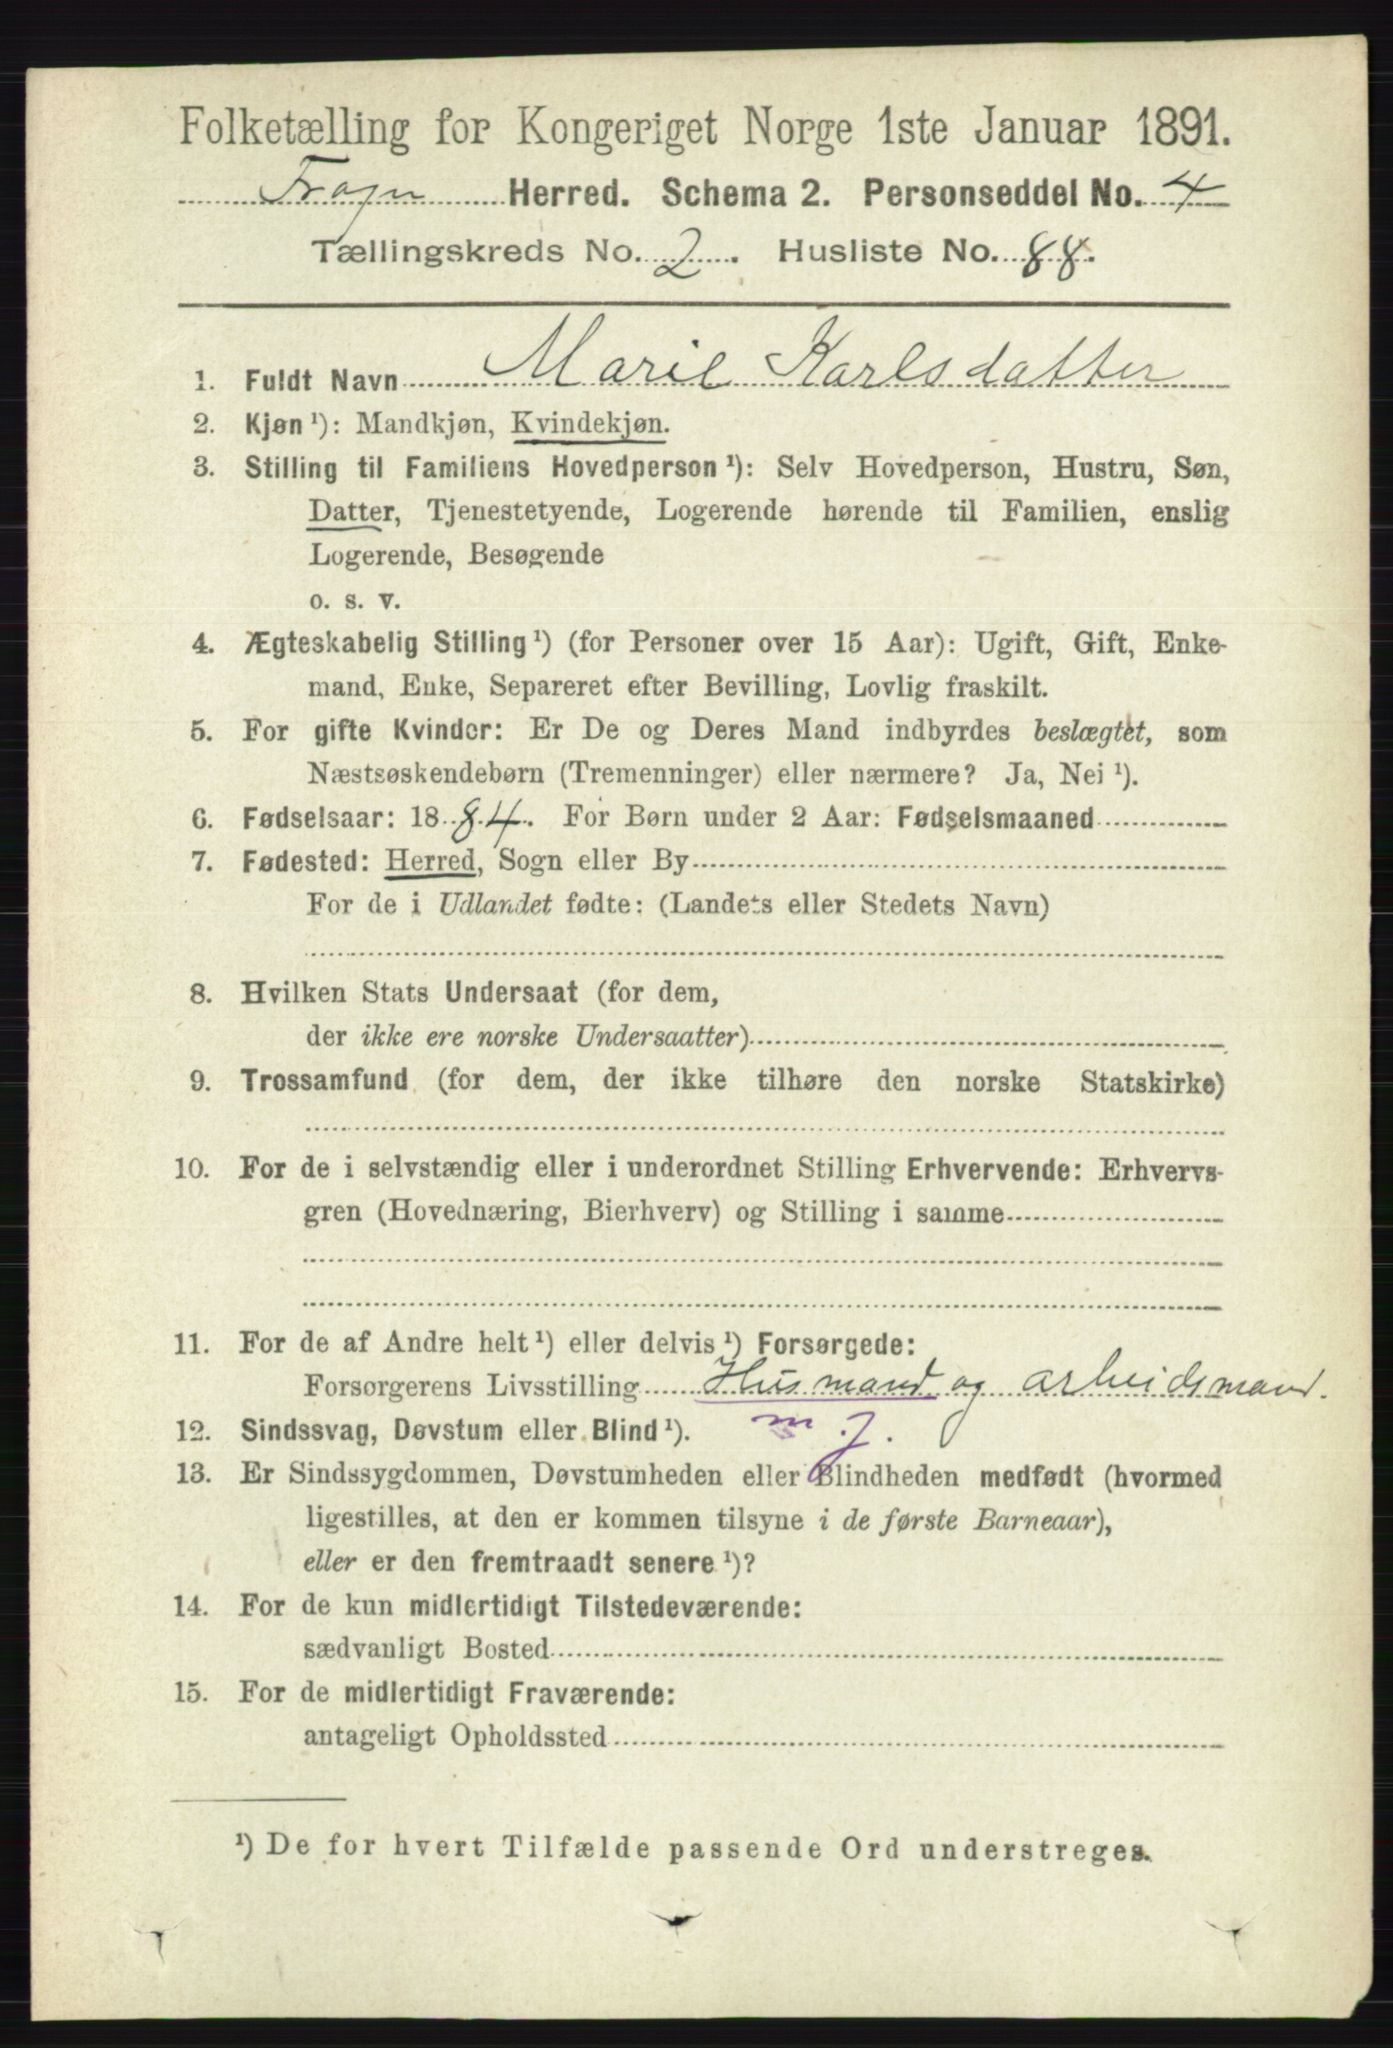 Folketælling for Kongeriget Norge 1ste Januar 1891.
Frogn Herred. Schema 2. Personseddel No. 4
Tællingskreds No. 2. Husliste No. 88.
1. Fuldt Navn Marie Karlsdatter
2. Kjøn ¹): Mandkjøn, Kvindekjøn.
3. Stilling til Familiens Hovedperson ¹): Selv Hovedperson, Hustru, Søn,
Datter, Tjenestetyende, Logerende hørende til Familien, enslig
Logerende, Besøgende
o. s. v.
4. Ægteskabelig Stilling ¹) (for Personer over 15 Aar): Ugift, Gift, Enke-
mand, Enke, Separeret efter Bevilling, Lovlig fraskilt.
5. For gifte Kvinder: Er De og Deres Mand indbyrdes beslægtet, som
Næstsøskendebørn (Tremenninger) eller nærmere? Ja, Nei ¹).
6. Fødselsaar: 1884. For Børn under 2 Aar: Fødselsmaaned
7. Fødested: Herred, Sogn eller By
For de i Udlandet fødte: (Landets eller Stedets Navn)
8. Hvilken Stats Undersaat (for dem,
der ikke ere norske Undersaatter)
9. Trossamfund (for dem, der ikke tilhøre den norske Statskirke)
10. For de i selvstændig eller i underordnet Stilling Erhvervende: Erhvervs-
gren (Hovednæring, Bierhverv) og Stilling i samme
11. For de af Andre helt ¹) eller delvis ¹) Forsørgede:
Forsørgerens Livsstilling Husmand og arbeidsmand.
m. j.
12. Sindssvag, Døvstum eller Blind ¹).
13. Er Sindssygdommen, Døvstumheden eller Blindheden medfødt (hvormed
ligestilles, at den er kommen tilsyne i de første Barneaar),
eller er den fremtraadt senere ¹)?
14. For de kun midlertidigt Tilstedeværende:
sædvanligt Bosted
15. For de midlertidigt Fraværende:
antageligt Opholdssted
¹) De for hvert Tilfælde passende Ord understreges.